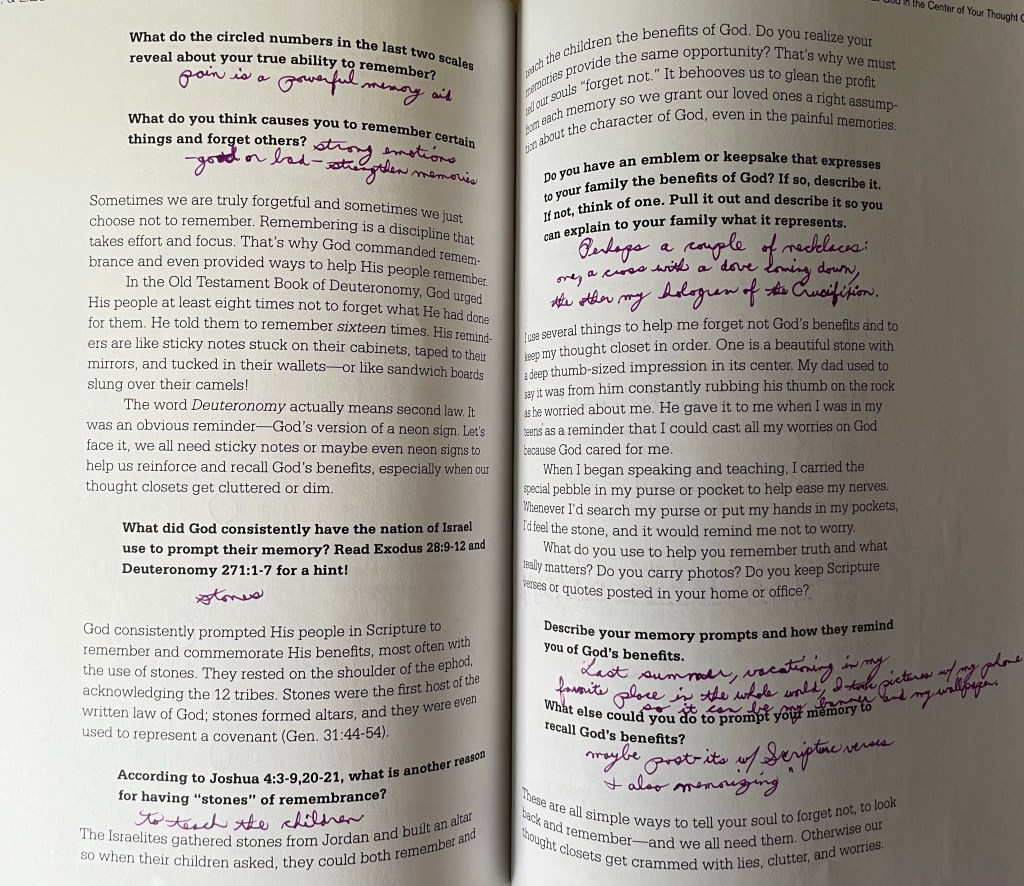 What do the circled numbers in the last two scales
reveal about your true ability to remember?
pain is a powerful memory aid
What do you think causes you to remember certain
things and forget others? strong emotions
-good or bad- strengthen memories
Sometimes we are truly forgetful and sometimes we just
choose not to remember. Remembering is a discipline that
takes effort and focus. That's why God commanded remem-
brance and even provided ways to help His people remember.
In the Old Testament Book of Deuteronomy, God urged
His people at least eight times not to forget what He had done
for them. He told them to remember sixteen times. His remind-
ers are like sticky notes stuck on their cabinets, taped to their
mirrors, and tucked in their wallets—or like sandwich boards
slung over their camels!
The word Deuteronomy actually means second law. It
was an obvious reminder—God's version of a neon sign. Let's
face it, we all need sticky notes or maybe even neon signs to
help us reinforce and recall God's benefits, especially when our
thought closets get cluttered or dim.
What did God consistently have the nation of Israel
use to prompt their memory? Read Exodus 28:9-12 and
Deuteronomy 271:1-7 for a hint!
stones
God consistently prompted His people in Scripture to
remember and commemorate His benefits, most often with
the use of stones. They rested on the shoulder of the ephod,
acknowledging the 12 tribes. Stones were the first host of the
written law of God; stones formed altars, and they were even
used to represent a covenant (Gen. 31:44-54).
According to Joshua 4:3-9,20-21, what is another reason
for having "stones" of remembrance?
to teach the children
The Israelites gathered stones from Jordan and built an altar
so when their children asked, they could both remember and
God in the Center of Your Thought
teach the children the benefits of God. Do you realize your
memories provide the same opportunity? That's why we must
tell our souls "forget not." It behooves us to glean the profit
from each memory so we grant our loved ones a right assump-
tion about the character of God, even in the painful memories.
Do you have an emblem or keepsake that expresses
to your family the benefits of God? If so, describe it.
If not, think of one. Pull it out and describe it so you
can explain to your family what it represents.
Perhaps a couple of necklaces:
one, a cross with a dove coming down,
the other my hologram of the Crucifixion.
I use several things to help me forget not God's benefits and to
keep my thought closet in order. One is a beautiful stone with
a deep thumb-sized impression in its center. My dad used to
say it was from him constantly rubbing his thumb on the rock
as he worried about me. He gave it to me when I was in my
teens as a reminder that I could cast all my worries on God
because God cared for me.
When I began speaking and teaching, I carried the
special pebble in my purse or pocket to help ease my nerves.
Whenever I'd search my purse or put my hands in my pockets,
I'd feel the stone, and it would remind me not to worry.
What do you use to help you remember truth and what
really matters? Do you carry photos? Do you keep Scripture
verses or quotes posted in your home or office?
Describe your memory prompts and how they remind
you of God's benefits.
Last summer, vacationing in my
favorite place in the whole world, I took pictures w/ my phone
so it can be my banner and my wallpaper.
What else could you do to prompt your memory to
recall God's benefits?
maybe post-its w/ Scripture verses
& also memorizing "
These are all simple ways to tell your soul to forget not, to look
back and remember—and we all need them. Otherwise our
thought closets get crammed with lies, clutter, and worries.